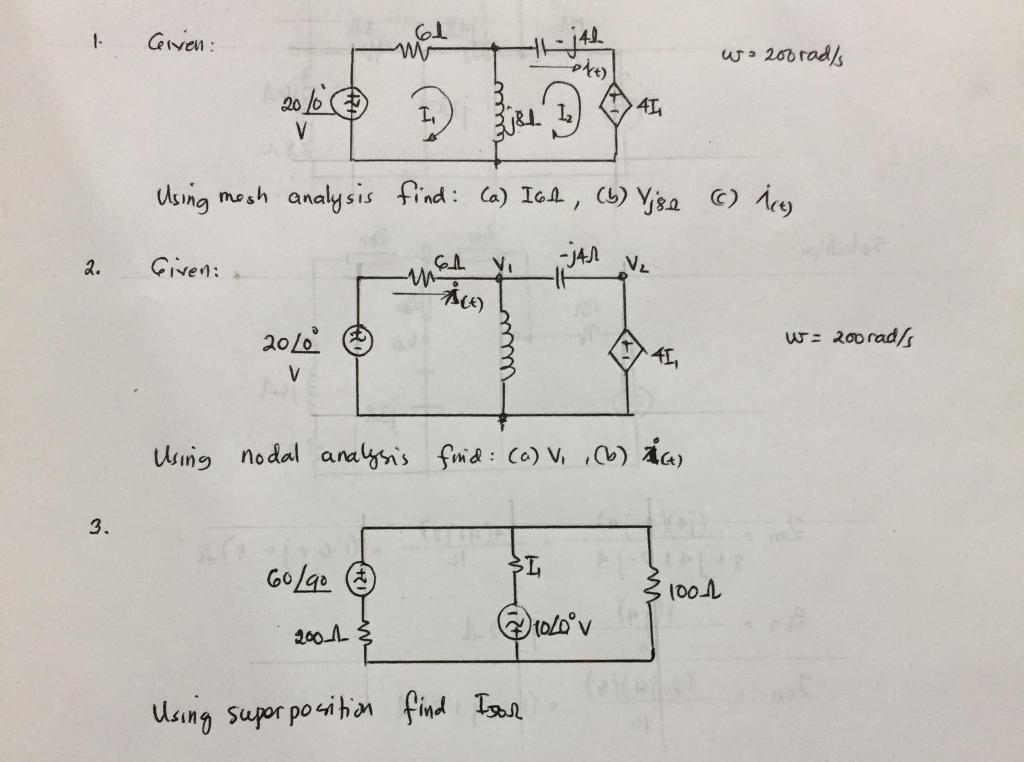 1. Given: 6Ω -j4Ω ω = 200 rad/s
i(t)
20∠0° V I₁ j8Ω I₂ + - 4I₁
Using mesh analysis find: (a) I6Ω, (b) Vj8Ω (c) i(t)
2. Given: 6Ω V₁ -j4Ω V₂
i(t)
20∠0° V + - 4I₁ ω = 200 rad/s
Using nodal analysis find: (a) V₁, (b) i(t)
3.
60∠90 I₁ 100Ω
200Ω 10∠0° V
Using superposition find I50Ω